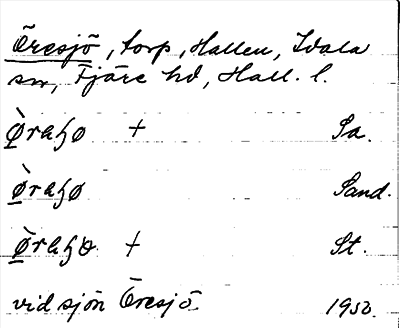 Öresjö, torp, Hallen, Idala
sn, Fjäre hd, Hall. l.
Ø̀raʒø + Sa.
Ø̀raʒø Sand.
Ø̀raʒø + St.
vid sjön Öresjö 1950.